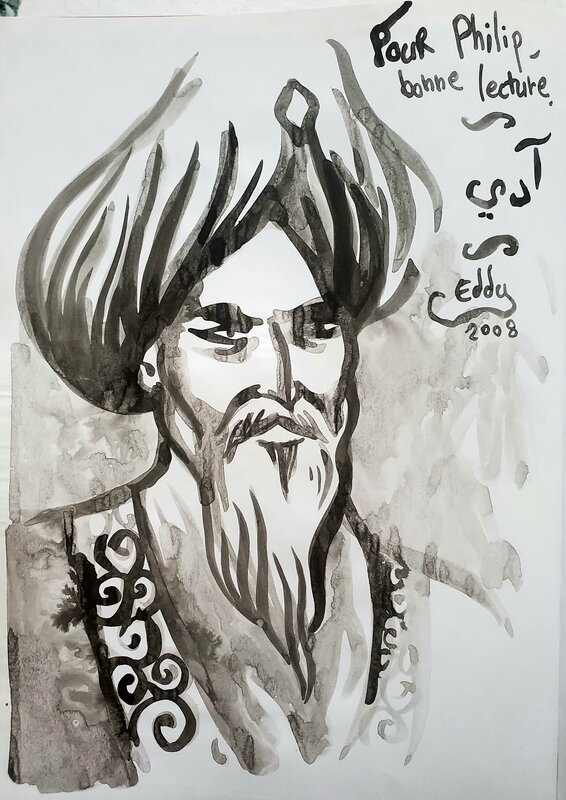 Pour Philip,
bonne lecture.
آدي
Eddy
2008